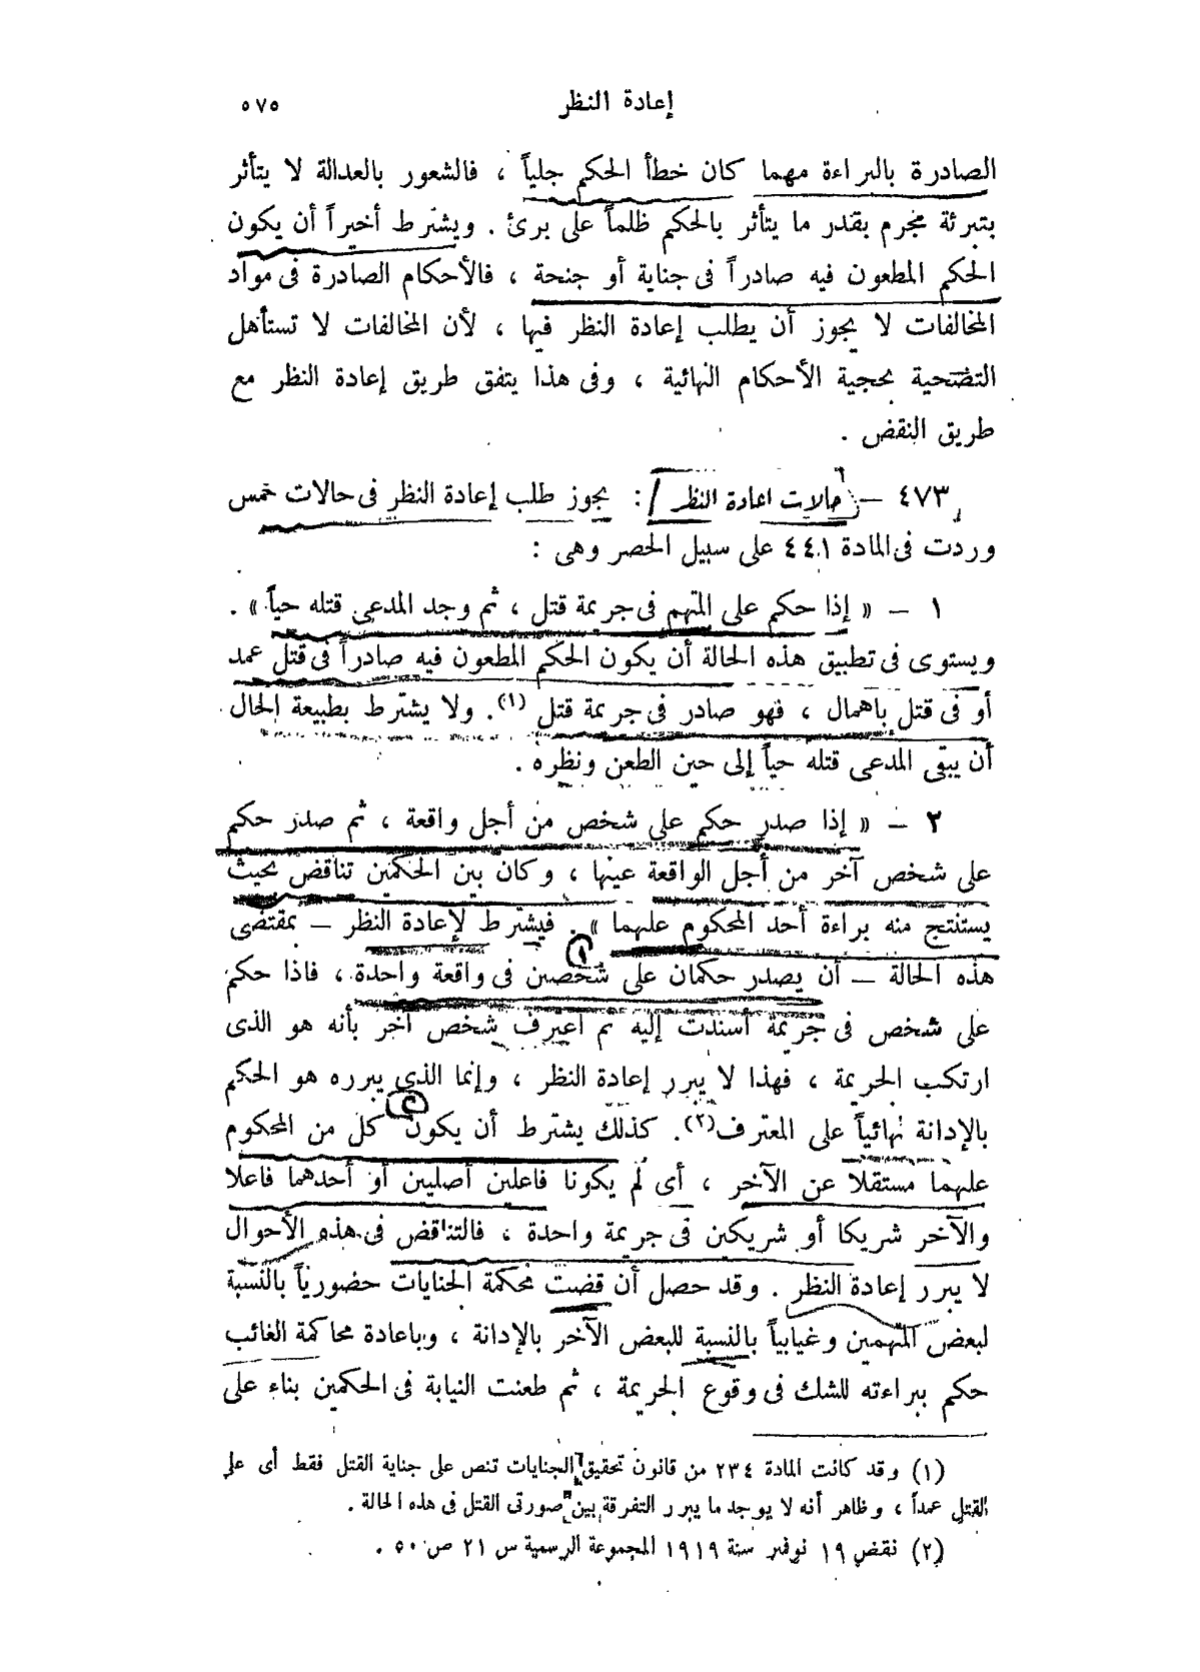 إعادة النظر ٥٧٥
الصادرة بالبراءة مهما كان خطأ الحكم جلياً ، فالشعور بالعدالة لا يتأثر
بتبرئة مجرم بقدر ما يتأثر بالحكم ظلماً على برئ . ويشترط أخيراً أن يكون
الحكم المطعون فيه صادراً فى جناية أو جنحة ، فالأحكام الصادرة فى مواد
المخالفات لا يجوز أن يطلب إعادة النظر فيها ، لأن المخالفات لا تستأهل
التضحية بحجية الأحكام النهائية ، وفى هذا يتفق طريق إعادة النظر مع
طريق النقض .
٤٧٣ – حالات اعادة النظر : يجوز طلب إعادة النظر فى حالات خمس
وردت فى المادة ٤٤١ على سبيل الحصر وهى :
١ – « إذا حكم على المتهم فى جريمة قتل ، ثم وجد المدعى قتله حياً » .
ويستوى فى تطبيق هذه الحالة أن يكون الحكم المطعون فيه صادراً فى قتل عمد
أو فى قتل باهمال ، فهو صادر فى جريمة قتل (١). ولا يشترط بطبيعة الحال
أن يبقى المدعى قتله حياً إلى حين الطعن ونظره .
٢ – « إذا صدر حكم على شخص من أجل واقعة ، ثم صدر حكم
على شخص آخر من أجل الواقعة عينها ، وكان بين الحكمين تناقض بحيث
يستنتج منه براءة أحد المحكوم عليهما » . فيشترط لإعادة النظر – بمقتضى
هذه الحالة – أن يصدر حكمان على شخصين فى واقعة واحدة ، فاذا حكم
على شخص فى جريمة أسندت إليه ثم اعترف شخص آخر بأنه هو الذى
ارتكب الجريمة ، فهذا لا يبرر إعادة النظر ، وإنما الذى يبرره هو الحكم
بالإدانة نهائياً على المعترف(٢). كذلك يشترط أن يكون كل من المحكوم
عليهما مستقلا عن الآخر ، أى لم يكونا فاعلين أصليين أو أحدهما فاعلا
والآخر شريكا أو شريكين فى جريمة واحدة ، فالتناقض فى هذه الأحوال
لا يبرر إعادة النظر . وقد حصل أن قضت محكمة الجنايات حضورياً بالنسبة
لبعض المتهمين وغيابياً بالنسبة للبعض الآخر بالإدانة ، وباعادة محاكمة الغائب
حكم ببراءته للشك فى وقوع الجريمة ، ثم طعنت النيابة فى الحكمين بناء على
(١) وقد كانت المادة ٢٣٤ من قانون تحقيق الجنايات تنص على جناية القتل فقط أى على
القتل عمداً ، وظاهر أنه لا يوجد ما يبرر التفرقة بين صورتى القتل فى هذه الحالة .
(٢) نقض ١٩ نوفمبر سنة ١٩١٩ المجموعة الرسمية س ٢١ ص ٥٠ .